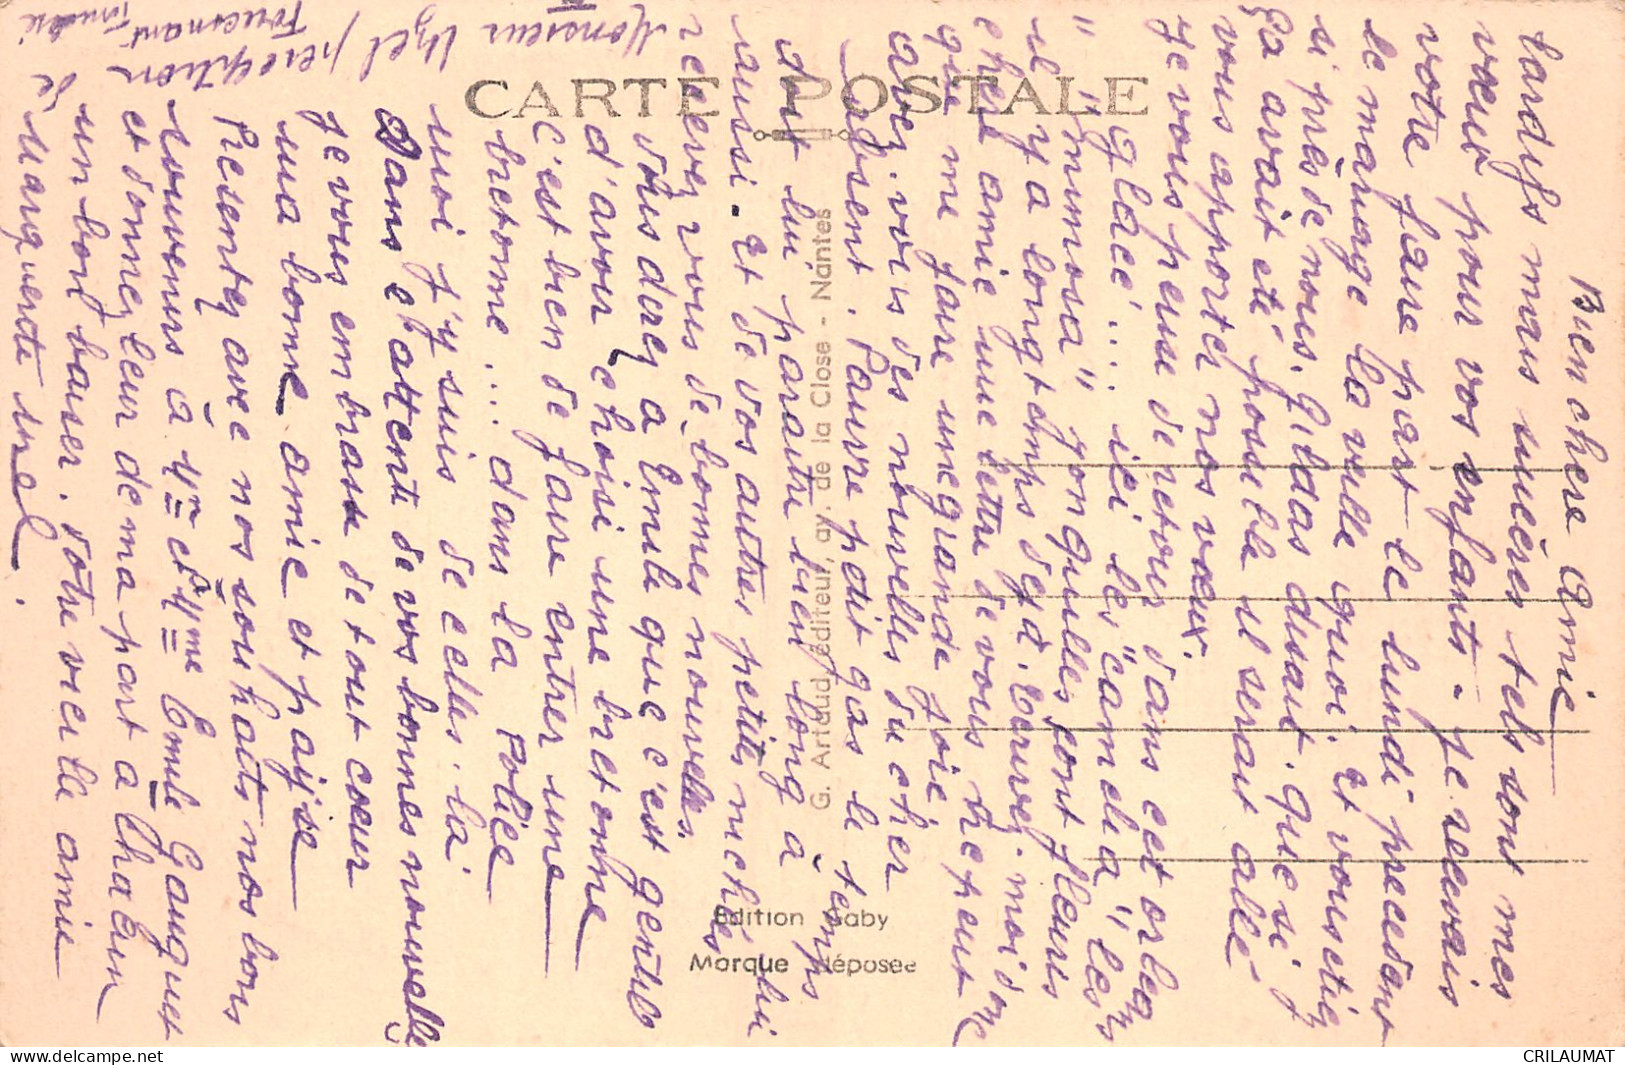 CARTE POSTALE
G. Artaud, éditeur, av. de la Close - Nantes
Edition Gaby
Marque déposée
Bien chère Amie
tardifs mais sincères tels sont mes
vœux pour vos enfants. je recevais
votre faire part le lundi precedent
le mariage la veille quoi. Et vous etiez
si près de nous. Gildas disait. que si
ça avait été possible il serait allé
vous apporter nos vœux.
Je vous pense de retour dans cet
glacé.... ici les "camelia", les
"mimosa" jonquilles sont fleuris
il y a longtemps deja. ecrivez. moi
chère amie une lettre de vous
que me faire une grande joie
avez. vous des nouvelles du cher
absent. Pauvre petit gas le temps
doit lui paraitre bien long à lui
aussi. Et de vos autres petites nieches
recevez vous de bonnes nouvelles
vous direz a Emile que c'est gentil
d'avoir choisi une bretonne
c'est bien de faire entrer une
bretonne.... dans la Police
moi j'y suis de celles. là.
Dans l'attente de vos bonnes nouvelles
je vous embrasse de tout cœur
ma bonne amie et payse
Presentez avec nos souhaits nos bons
souvenirs à Mr et Mme Emile Gauguet
et donnez leur de ma part a Chacun
un bon baiser. Votre vieille amie
Marguerite
Monsieur Uzel perception de
Fouesnant